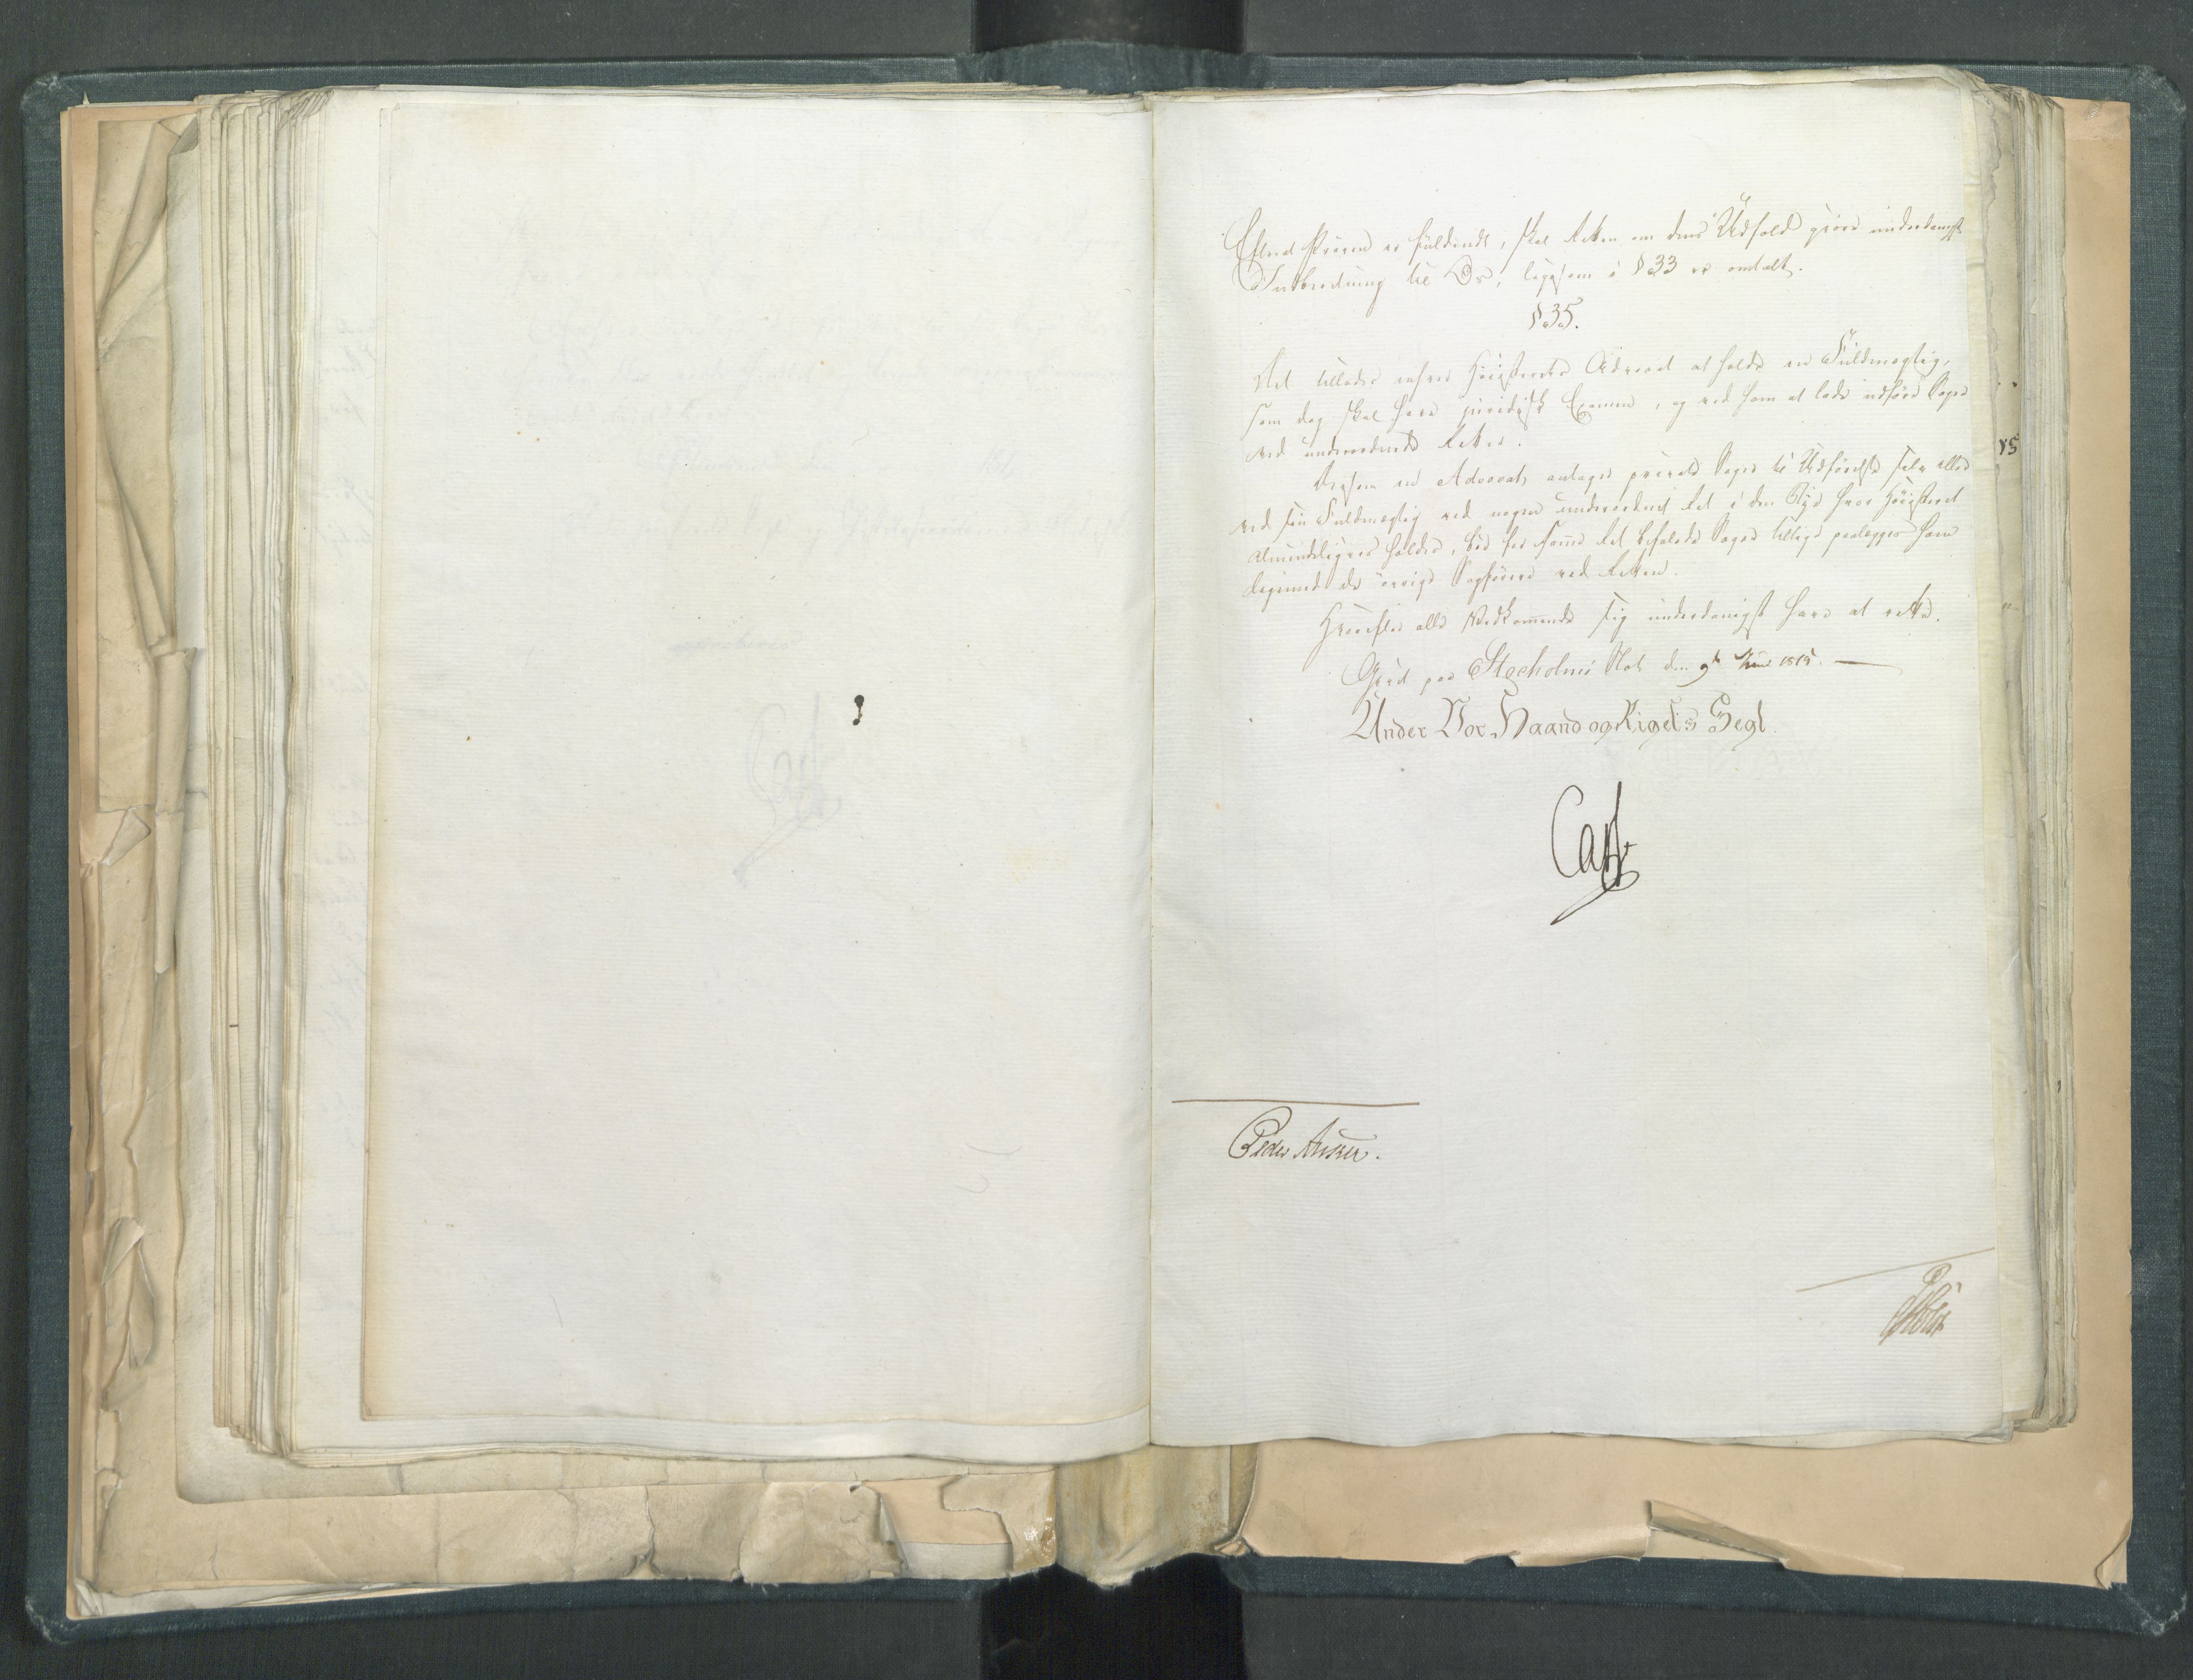 Efterat Prøven er fuldendt, skal Retten om dens Udfald giøre underdanigst
Indberetning til Os, ligesom i § 33 er omtalt.
§ 35.
Det tillades enhver Høiesterets Advocat at holde en Fuldmægtig,
som dog skal have juridisk Examen, og ved ham at lade udføre Sager
ved underordnede Retter.
Dersom en Advocat antager private Sager til Udførelse selv eller
ved sin Fuldmægtig ved nogen underordnet Ret i den Bye hvor Høiesteret
almindeligviis holdes, bør for samme Ret befalede Sager tillige paalægges ham
ligimod de øvrige Sagførere ved Retten.
Hvorefter alle Vedkommende sig underdanigst have at rette.
Givet paa Stockholms Slot den 9de 1815.
Under Vor Haand og Rigets Segl.
Carl
Peder Anker.